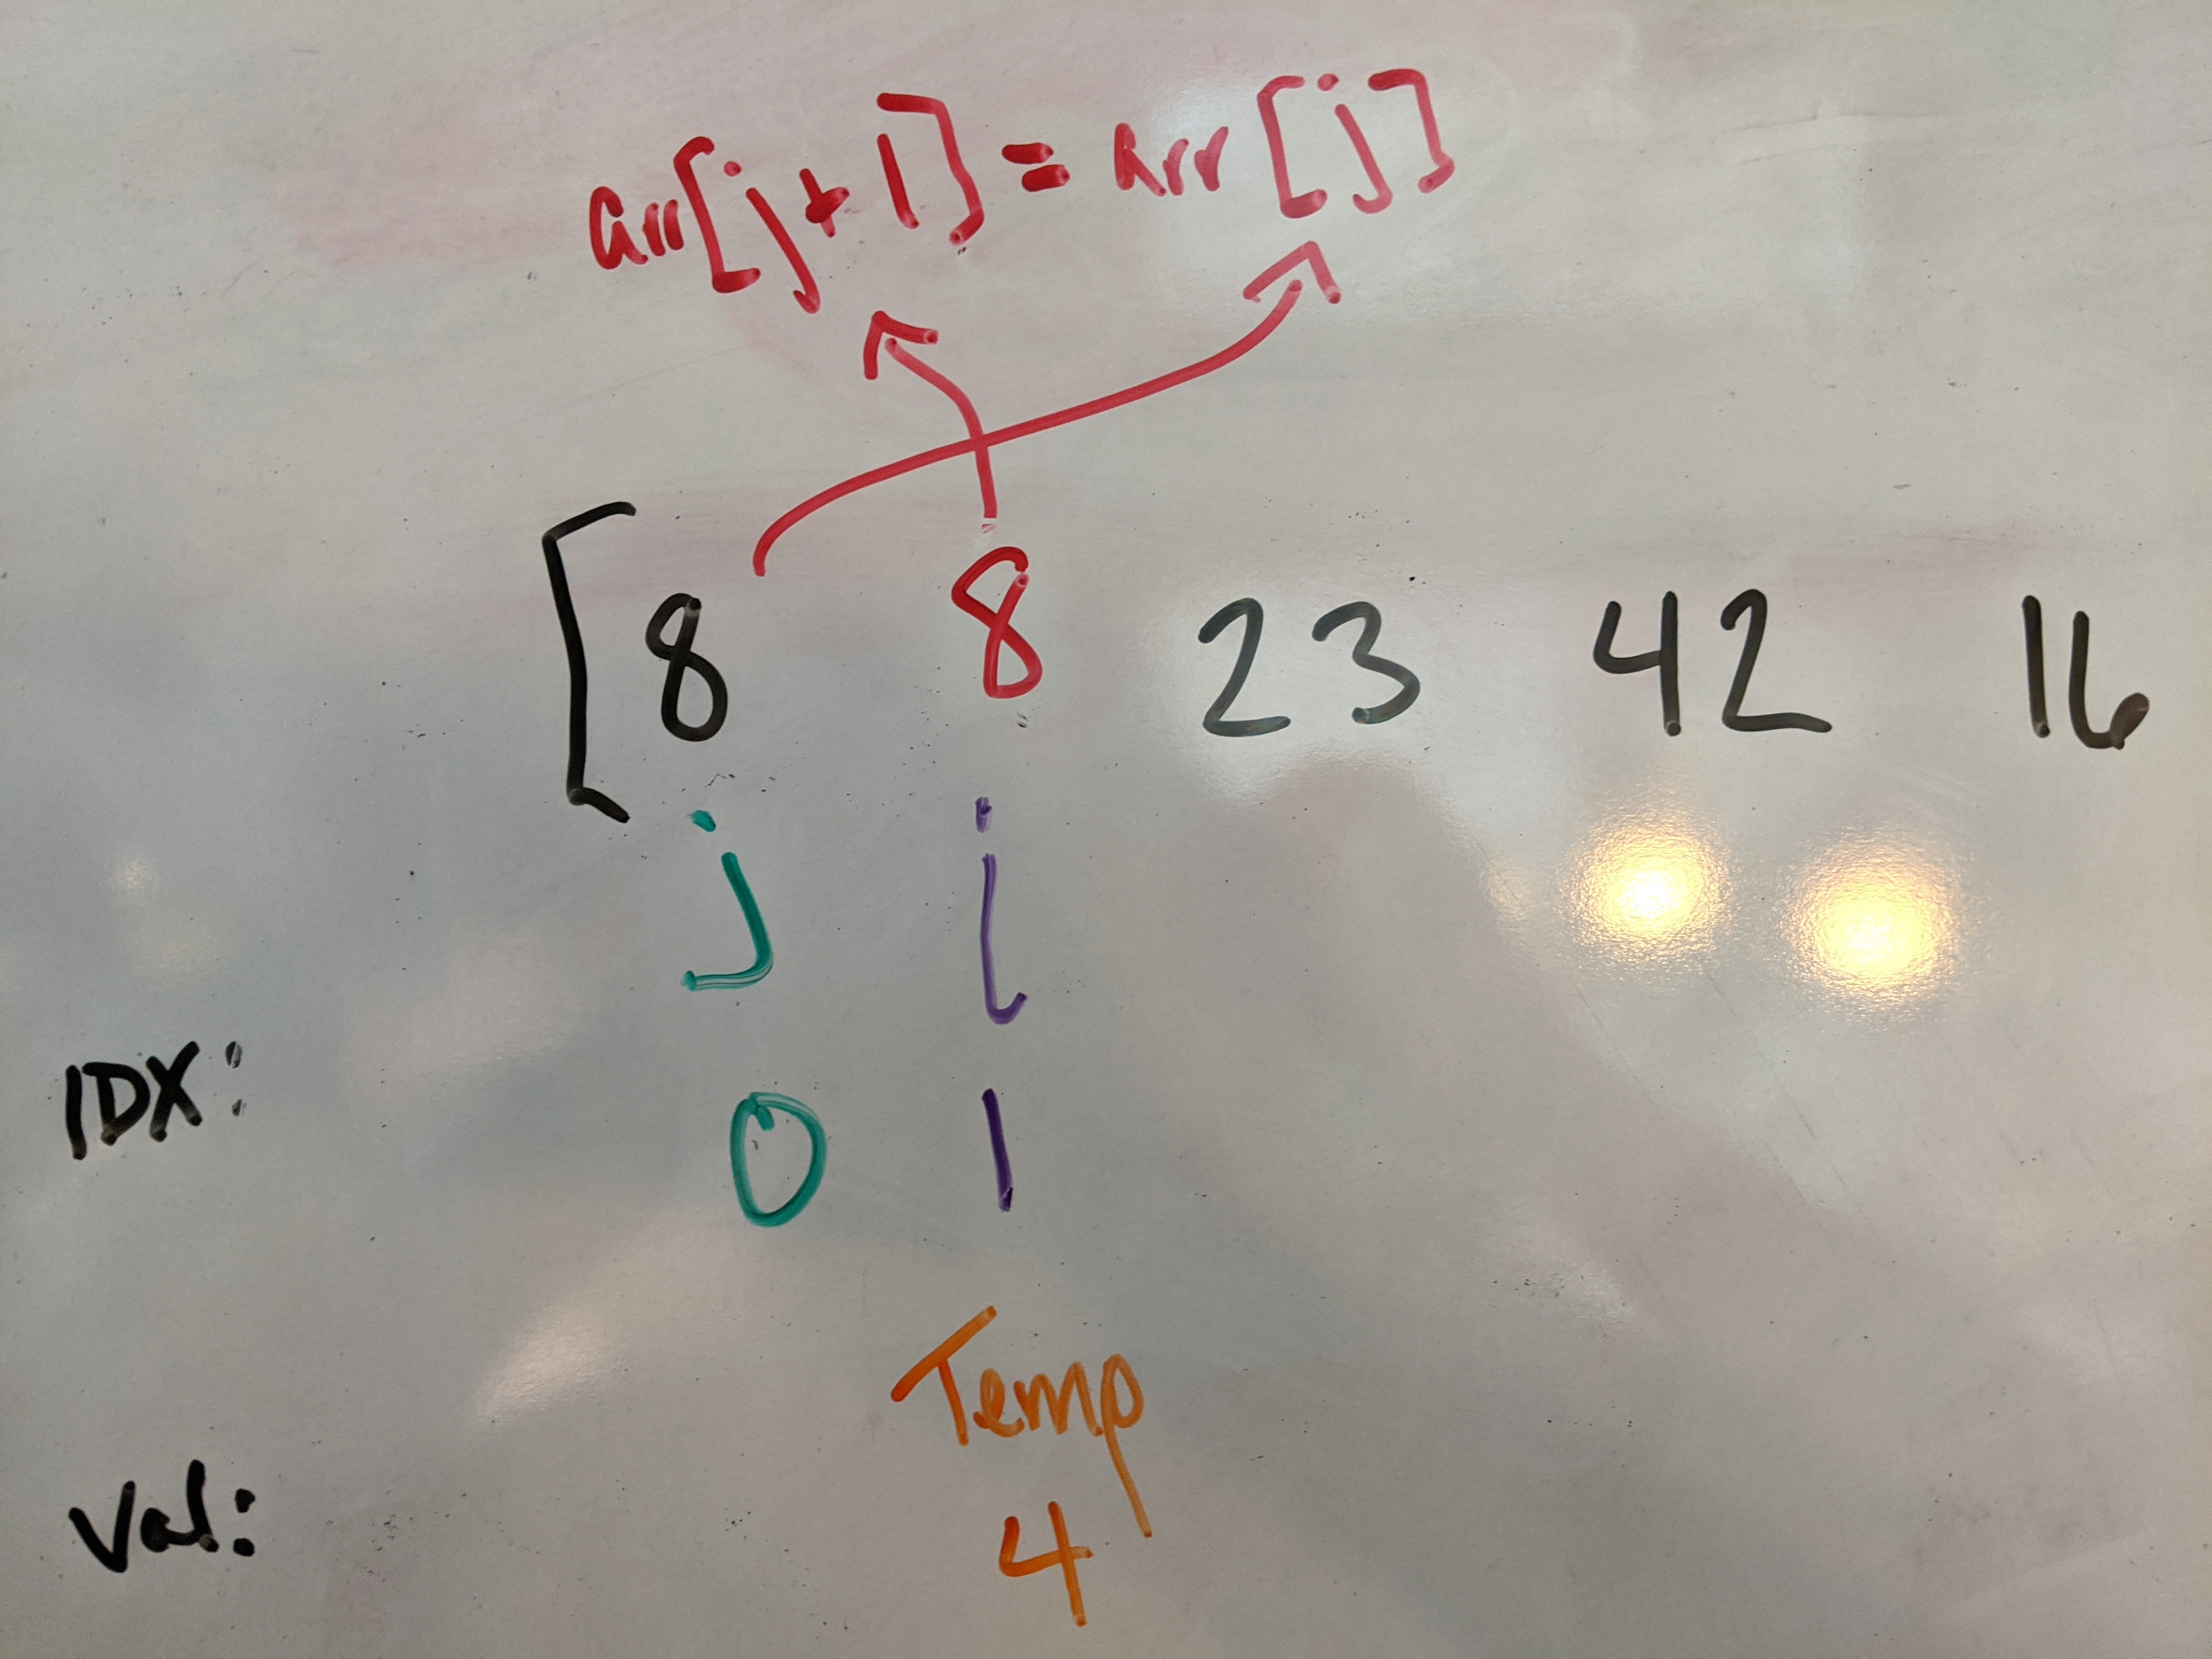 arr[j+1] = arr[j]
[8 8 23 42 16
j i
IDX: 0 1
Temp
Val: 4